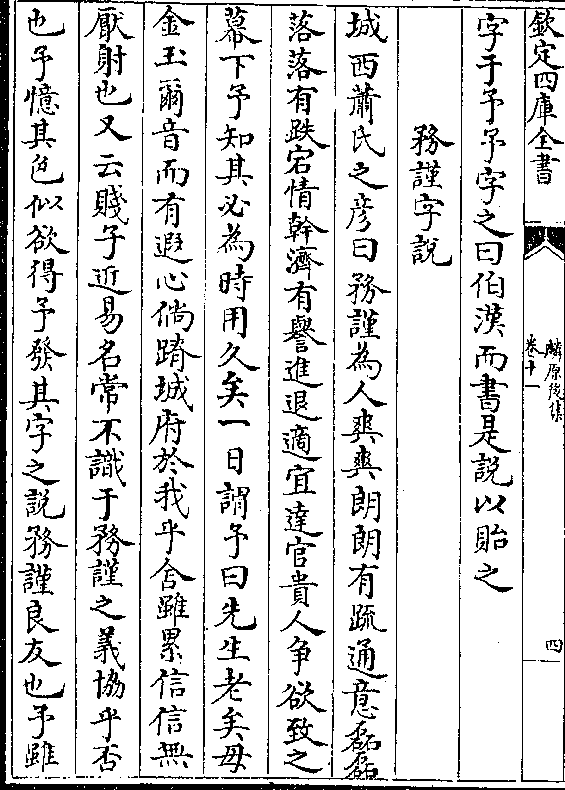 欽定四庫全書
麟原後集
卷十一
四
字于予予字之曰伯漢而書是說以貽之
務謹字說
城西蕭氏之彦曰務謹為人爽爽朗朗有疏通意磊磊
落落有跌宕情幹濟有譽進退適宜達官貴人争欲致之
幕下予知其必為時用久矣一日謂予曰先生老矣毋
金玉爾音而有遐心倘躋城府於我乎舍雖累信信無
厭射也又云賤子近易名常不識于務謹之義協乎否
也予憶其色似欲得予發其字之說務謹良友也予雖